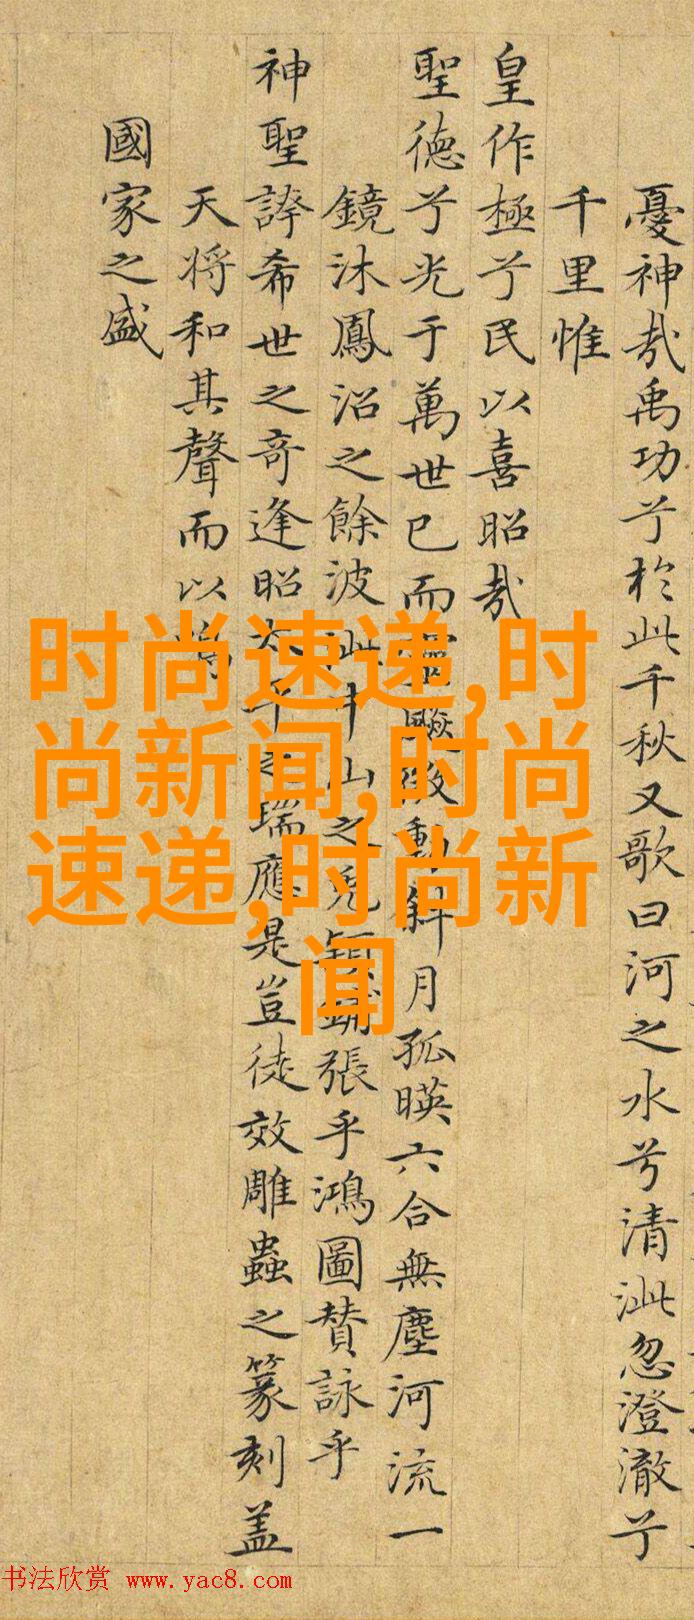 憂神哉禹功兮於此千秋又歌曰河之水兮清泚忽澄澈兮
千里惟
皇作極兮民以喜昭哉
聖德兮光于萬世已而動斜月孤暎六合無塵河流一
鏡沐鳳沼之餘波泚中山之兔穎鋪張乎鴻圖贊詠乎
神聖誇希世之奇逢昭太平之瑞應是豈徒效雕蟲之篆刻盖
天將和其聲而以鳴
國家之盛
时尚速递,时
尚新闻,时尚
速递,时尚新
闻
书法欣赏 www.yac8.com